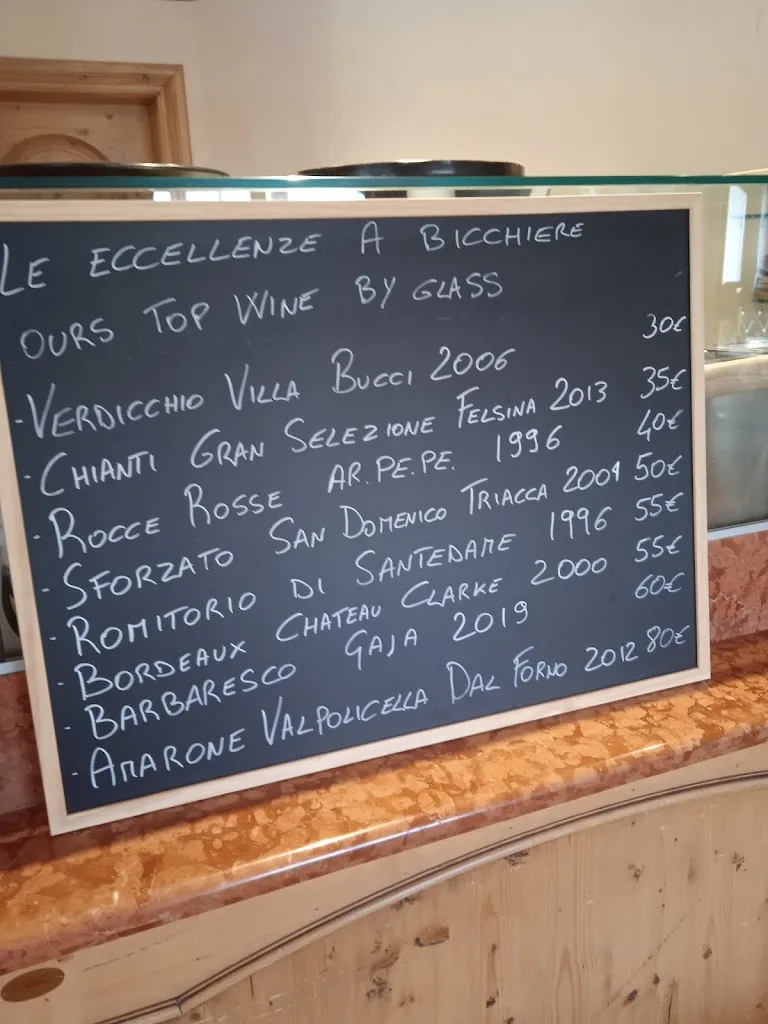 LE ECCELLENZE A BICCHIERE
OURS TOP WINE BY GLASS
- VERDICCHIO VILLA BUCCI 2006 30€
- CHIANTI GRAN SELEZIONE FELSINA 2013 35€
- ROCCE ROSSE AR.PE.PE. 1996 40€
- SFORZATO SAN DOMENICO TRIACCA 2001 50€
- ROMITORIO DI SANTEDAME 1996 55€
- BORDEAUX CHATEAU CLARKE 2000 55€
- BARBARESCO GAJA 2019 60€
- AMARONE VALPOLICELLA DAL FORNO 2012 80€